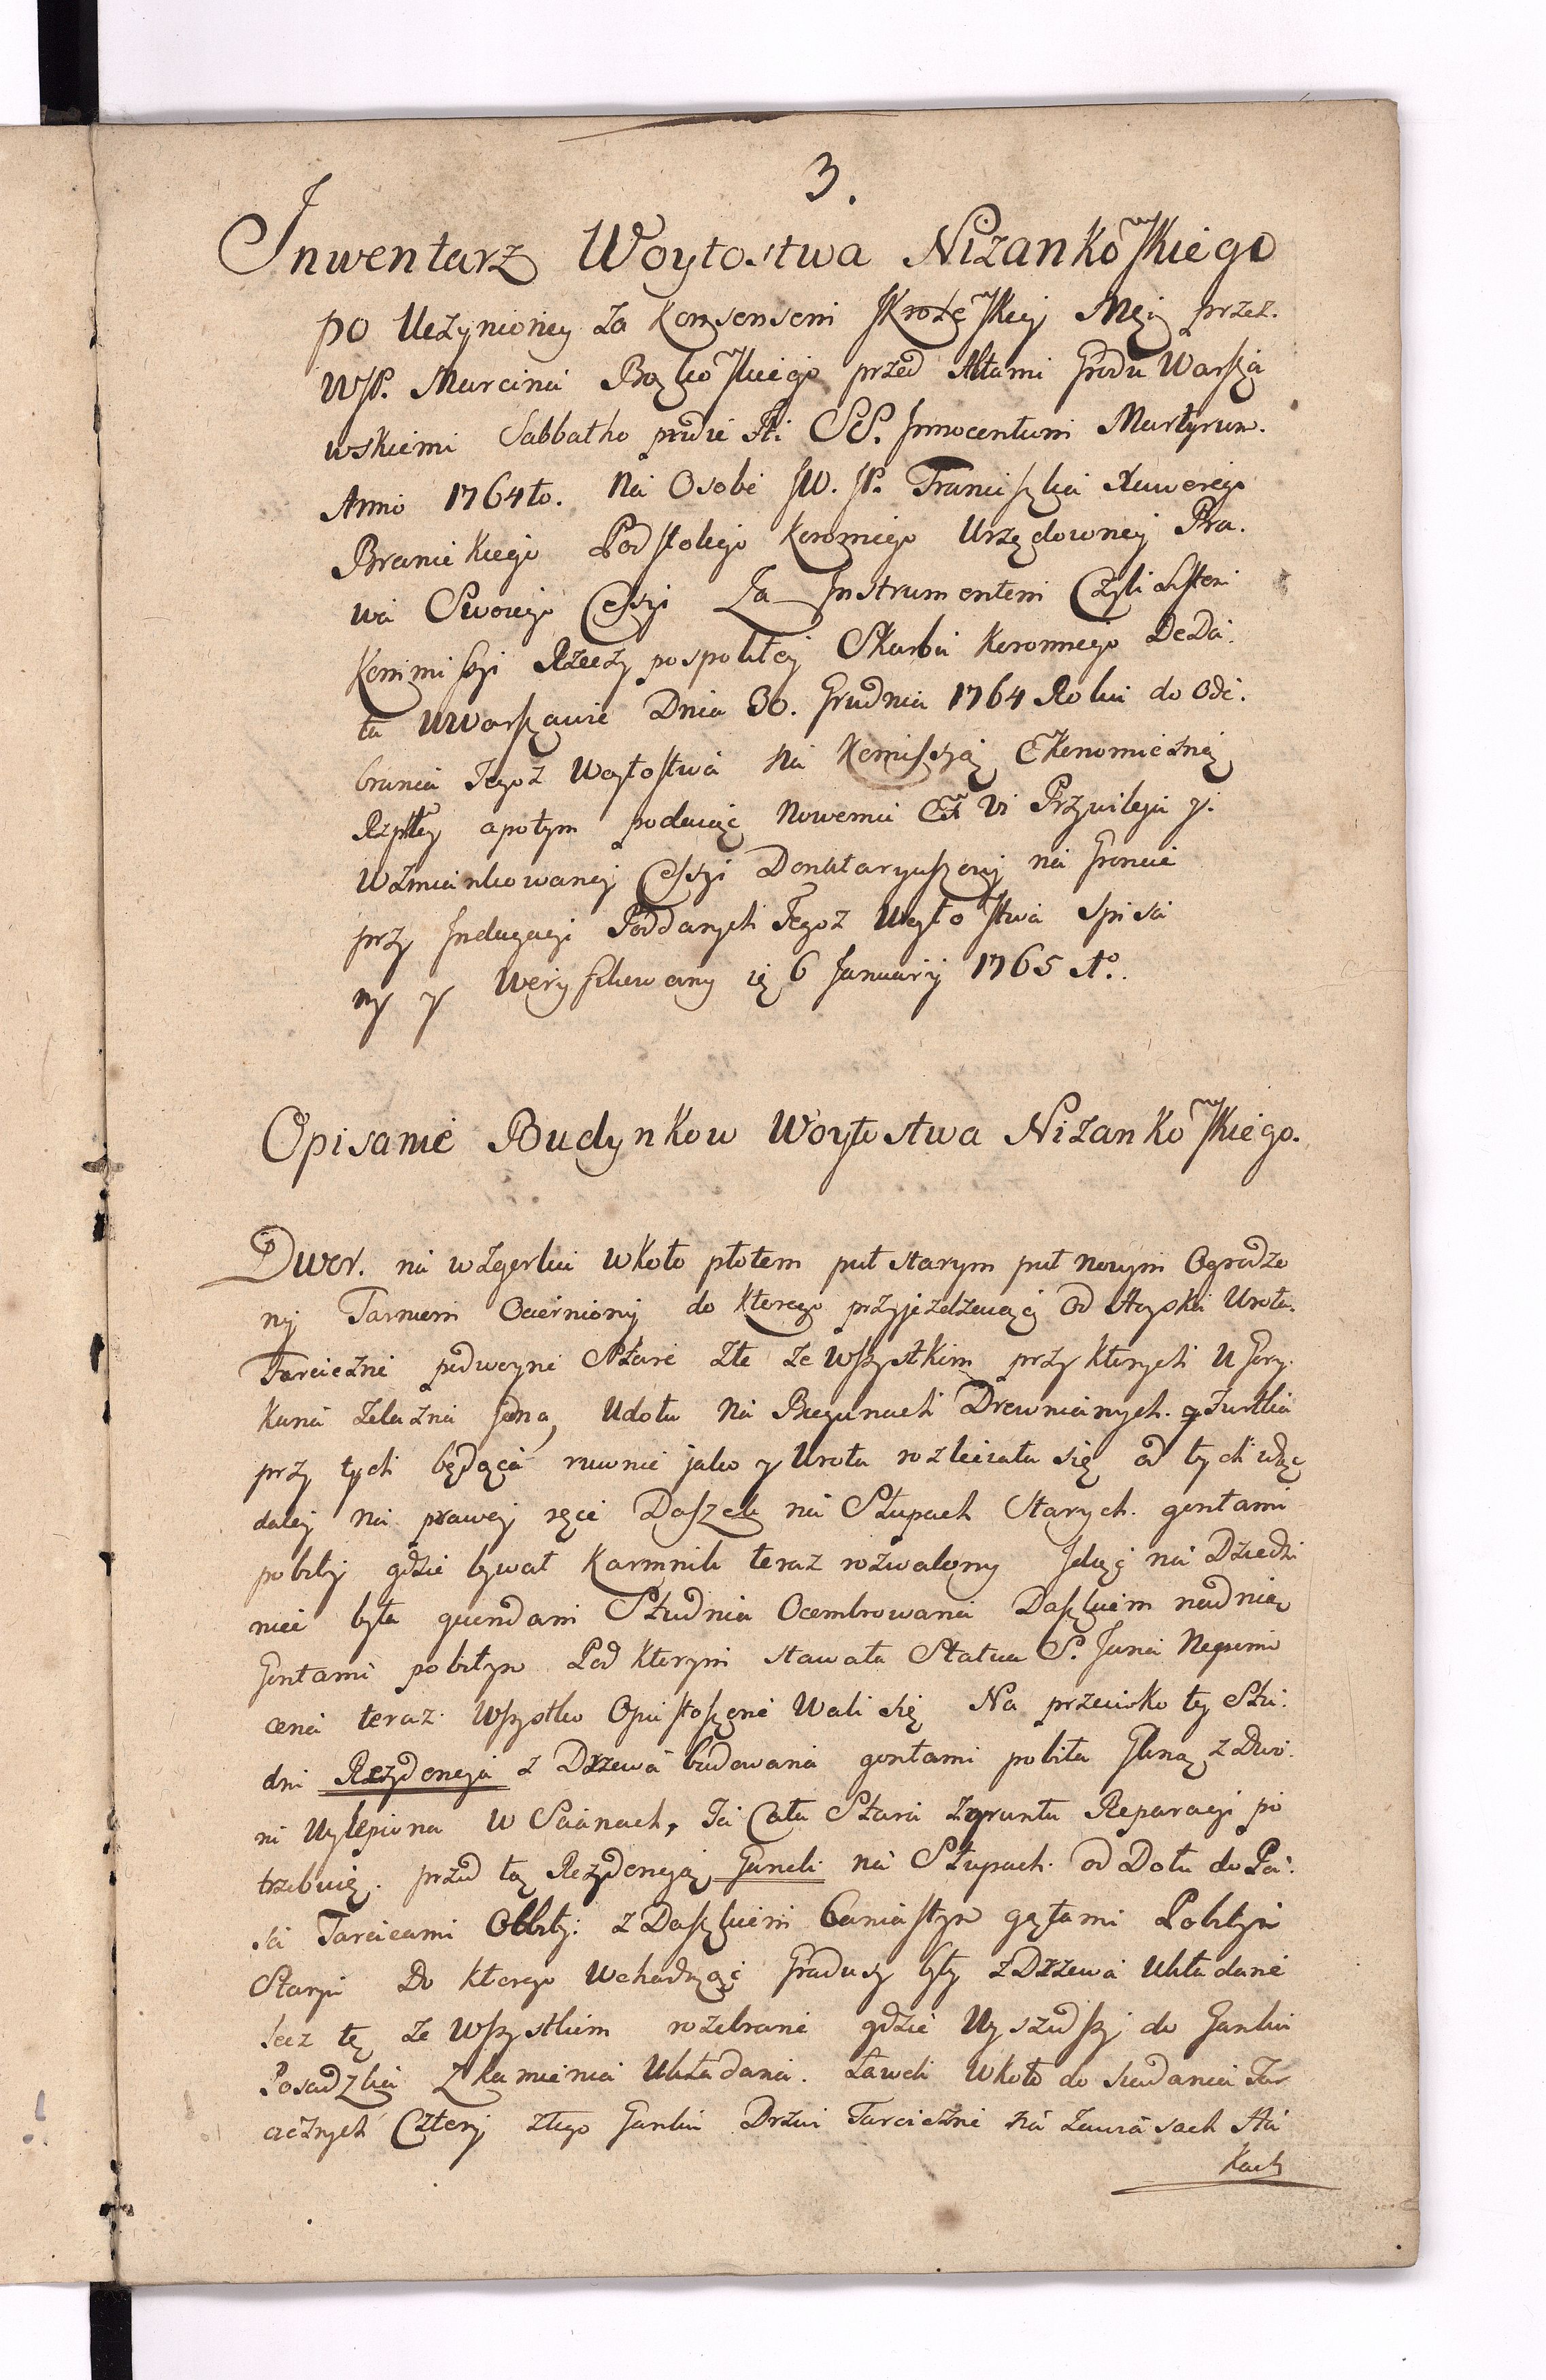 3.
Inwentarz Woytostwa Nizankowskiego
po Uczynioney za Konsensem JKrolewskiey Mci przez
WJP. Marcina przed Aktami Grodu Warsza
wskiemi Sabbatho pridie Fti SS. Innocentum Martyrum.
Anno 1764to. Na Osobe JW. JP. Franciszka Xawerego
Branickiego Podstolego Koronnego Urzędowney Pra.
wa Swoiego Cessyi Za Instrumentem Czyli Listem
Kommissyi Rzeczypospolitey Skarbu Koronnego De Da.
ta w Warszawie Dnia 30. Grudnia 1764 Roku do Ode.
brania Tegoz Woytostwa Na Komissyą Ekonomiczną
Rzpltey apotym podaiąc Nowemu Vi Przywileju y.
Wzmiankowaney Cessyi Donataryuszowi na Groncie
przy Indagacyi Poddanych Tegoz Woytostwa Spisa
ny y Weryfikowany 6 January 1765 Ao.
Opisanie Budynkow Woytostwa Nizankowskiego.
Dwor. na wzgorku wkoło płotem puł starym puł nowym Ogrodzo
ny Tarniem Ocierniony do ktorego przyjezdzaiąc Od Wrota.
Tarciczne podwoyne Stare złe ze wszystkim przy ktorych u Gory
Kuna zelazna jedna, Udołu na Biegunach Drewnianych. y Furtka
przy tych będąca ruwnie jako y Wrota rozleciała się od tych idąc
daley na prawey ręce Daszek na Słupach Starych. gontami
pobity gdzie bywał Karmnik teraz rozwalony Idąc na Dziedzi
niec była quondam Studnia Ocembrowana Daszkiem nad nią
Gontami pobitym Pod ktorym stawała Statua S. Jana Nepomu
cena teraz Wszystko Opustoszone Wali się Na przeciwko tey Stu.
dni Rezydencja z Drzewa budowana gontami pobita Gliną z Dwo.
ru Wylepiona w Scianach, Ta Cała Stara zgruntu Reparacyi po
trzebuie. przed tą Rezydencyą Ganek na Słupach. od Dołu do Pa.
sa Tarcicami Obbity. z Daszkiem Baniastym gątami Pobitym
Starym Do ktorego Wchodząc Gradusy były z Drzewa Układane
lecz te ze wszystkim rozebrane gdzie Wyszedszy do Ganku
Posadzka z kamienia Układana. Ławek Wkoło do siadania Tar
cicznych Cztery ztego Ganku Drzwi Tarciczne na Zawiasach Ha
Kach